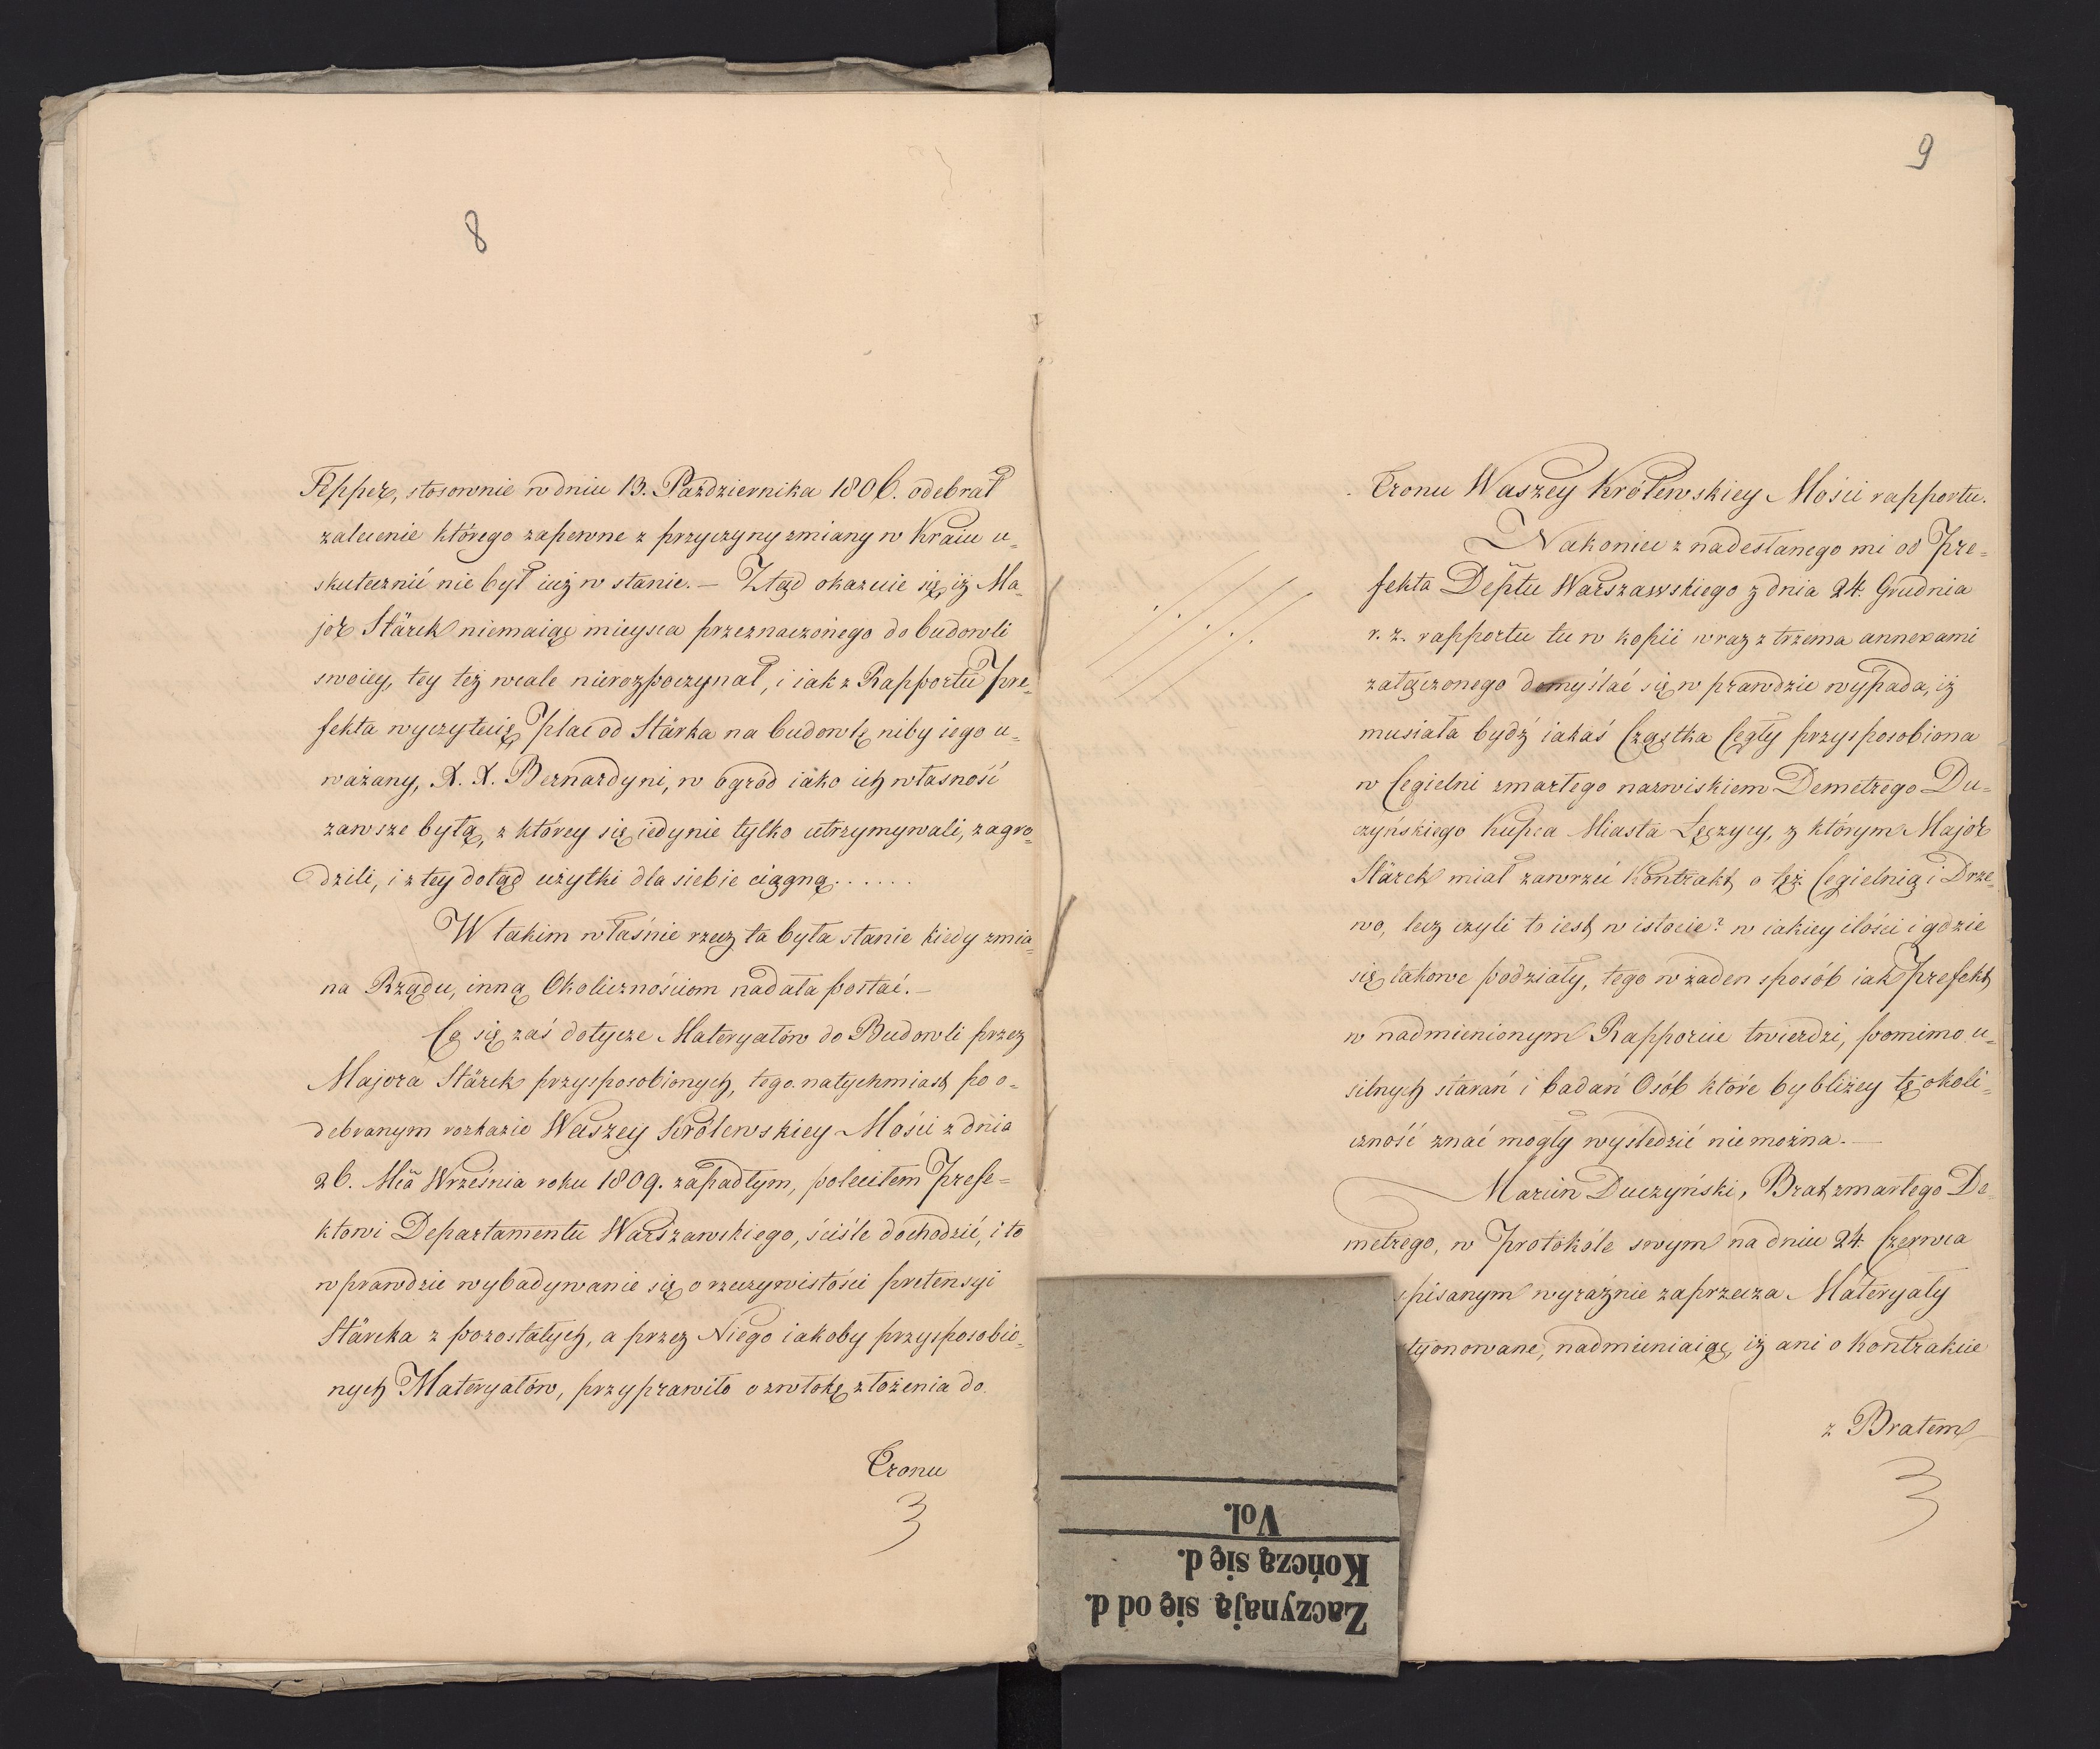 8
Tepper, stosownie w dniu 13. Października 1806. odebrał
zalecenie którego zapewne z przyczyny zmiany w Kraiu u=
skutecznić nie był iuż w stanie. — Ztąd okazuie się, iż Ma=
jor Stärck niemaiąc mieysca przeznaczonego do budowli
swoiey, tey też wcale nierozpoczynał, i iak z Rapportu Pre=
fekta wyczytuię, Plac od Stärka na budowlę niby iego u=
ważany, X. X. Bernardyni, w ogród iako ich własność
zawsze byłą, z którey się iedynie tylko utrzymywali, zagro=
dzili, i z tey dotąd użytki dla siebie ciągną......
W takim właśnie rzecz ta była stanie kiedy zmia=
na Rządu, inną Okolicznościom nadała postać. —
Co się zaś dotycze Materyałów do Budowli przez
Majora Stärck przysposobionych, tego natychmiast po o=
debranym rozkazie Waszey Królewskiey Mości z dnia
26. Mca Września roku 1809. zapadłym, poleciłem Prefe=
ktowi Departamentu Warszawskiego, ściśle dochodzić, i to
w prawdzie wybadywanie się o rzeczywistości pretensyi
Stärcka z pozostałych, a przez Niego iakoby przysposobio=
nych Materyałów, przyprawiło o zwłokę złożenia do
Tronu
9
Tronu Waszey Królewskiey Mości rapportu.
Nakoniec z nadesłanego mi od Pre=
fekta Deptu Warszawskiego z dnia 24. Grudnia
r. z. rapportu tu w kopii wraz z trzema annexami
załączonego domyślać się w prawdzie wypada, iż
musiała bydź iakaś Cząstka Cegły przysposobiona
w Cegielni zmarłego nazwiskiem Demetrego Du=
czyńskiego Kupca Miasta Łęczycy, z którym Major
Stärck miał zawrzeć Kontrakt, o tęż Cegielnią i Drze=
wo, lecz czyli to iest w istocie? w iakiey ilości i gdzie
się takowe podziały, tego w żaden sposób iak Prefekt
w nadmienionym Rapporcie twierdzi, pomimo u=
silnych starań i badań Osób które by bliżey tę okoli=
czność znać mogły wyśledzić nie można. —
Marcin Duczyński, Brat zmarłego De=
metrego, w Protokóle swym na dniu 24. Czerwca
pisanym wyraźnie zaprzecza Materyały
tyonowane, nadmieniaiąc, iż ani o Kontrakcie
z Bratem
Zaczynają się od d.
Kończą się d.
Vol.